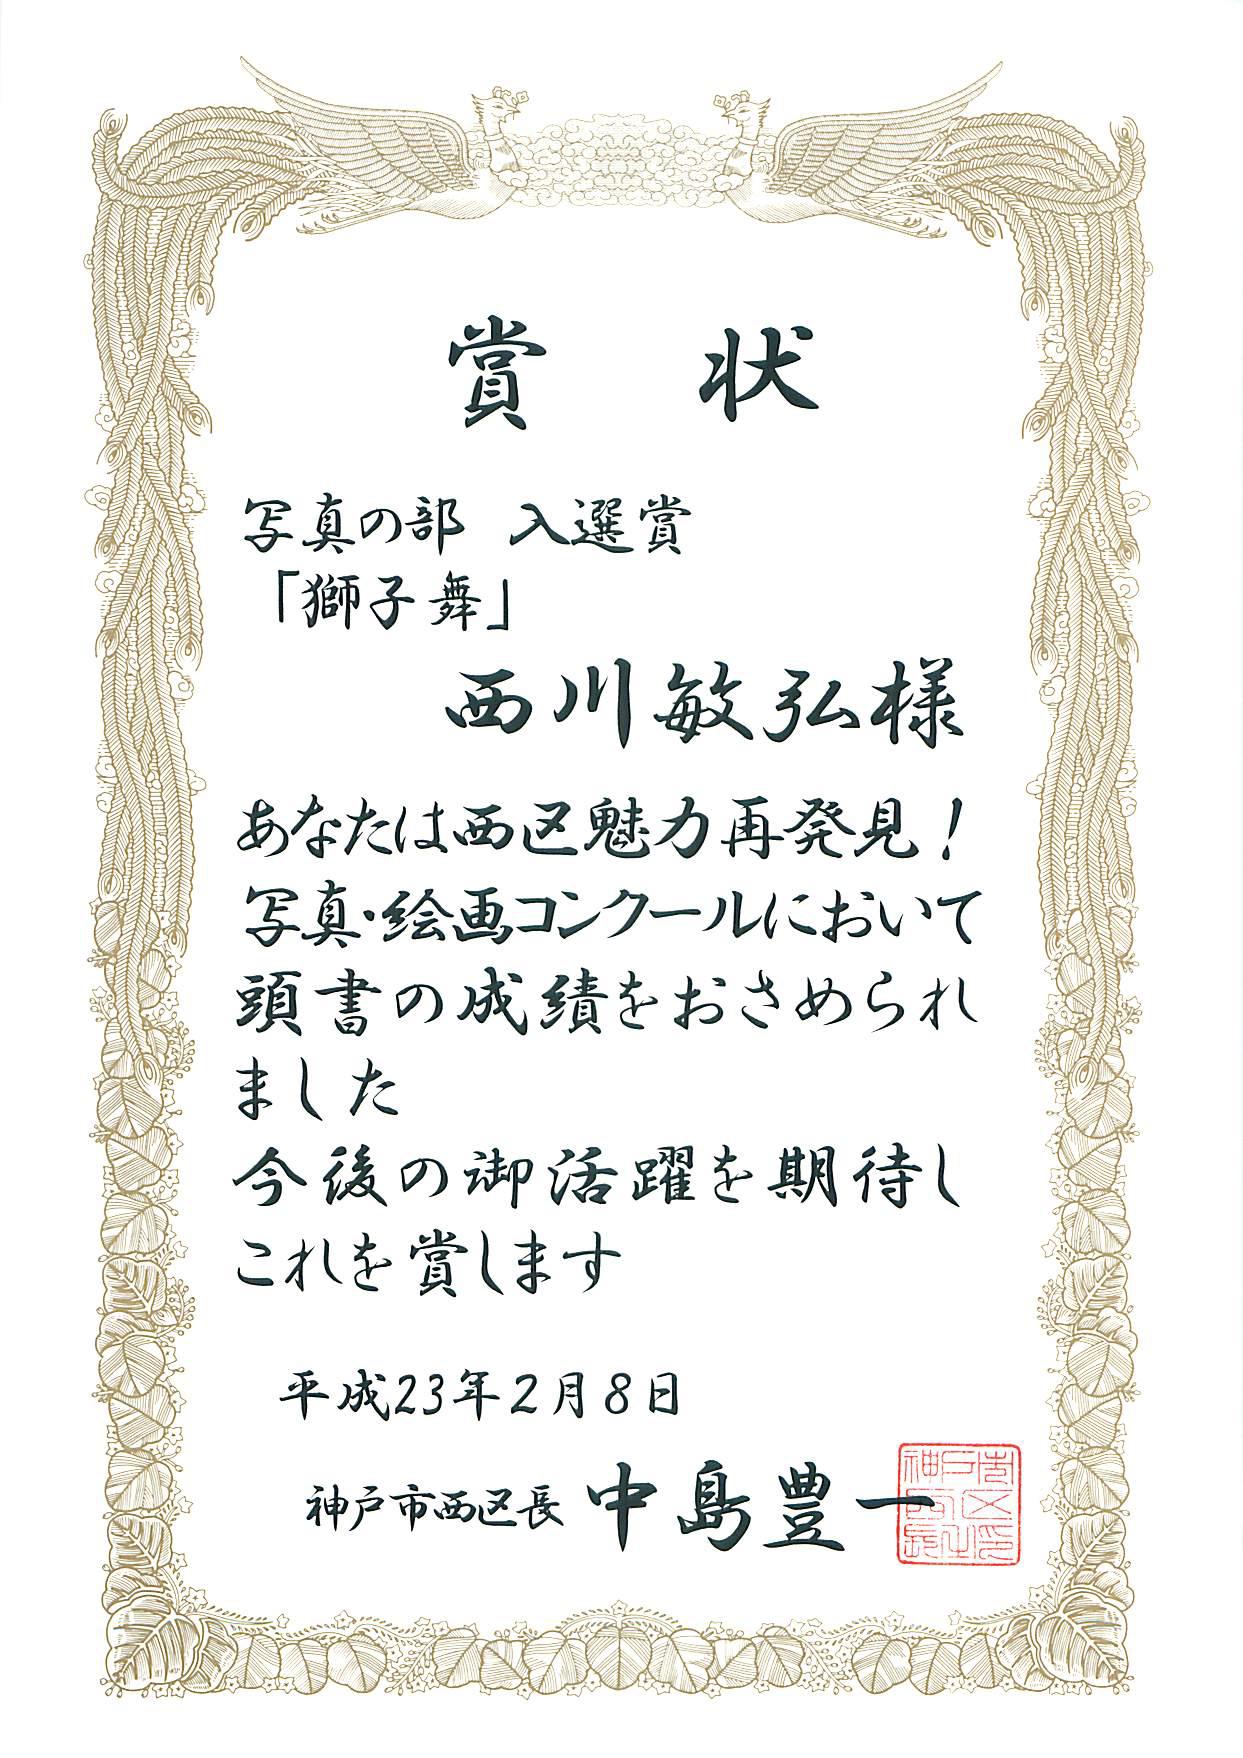 賞状
写真の部 入選賞
「獅子舞」
西川敏弘様
あなたは西区魅力再発見！
写真・絵画コンクールにおいて
頭書の成績をおさめられ
ました
今後の御活躍を期待し
これを賞します
平成23年2月8日
神戸市西区長 中島豊一
神戸市西区長之印